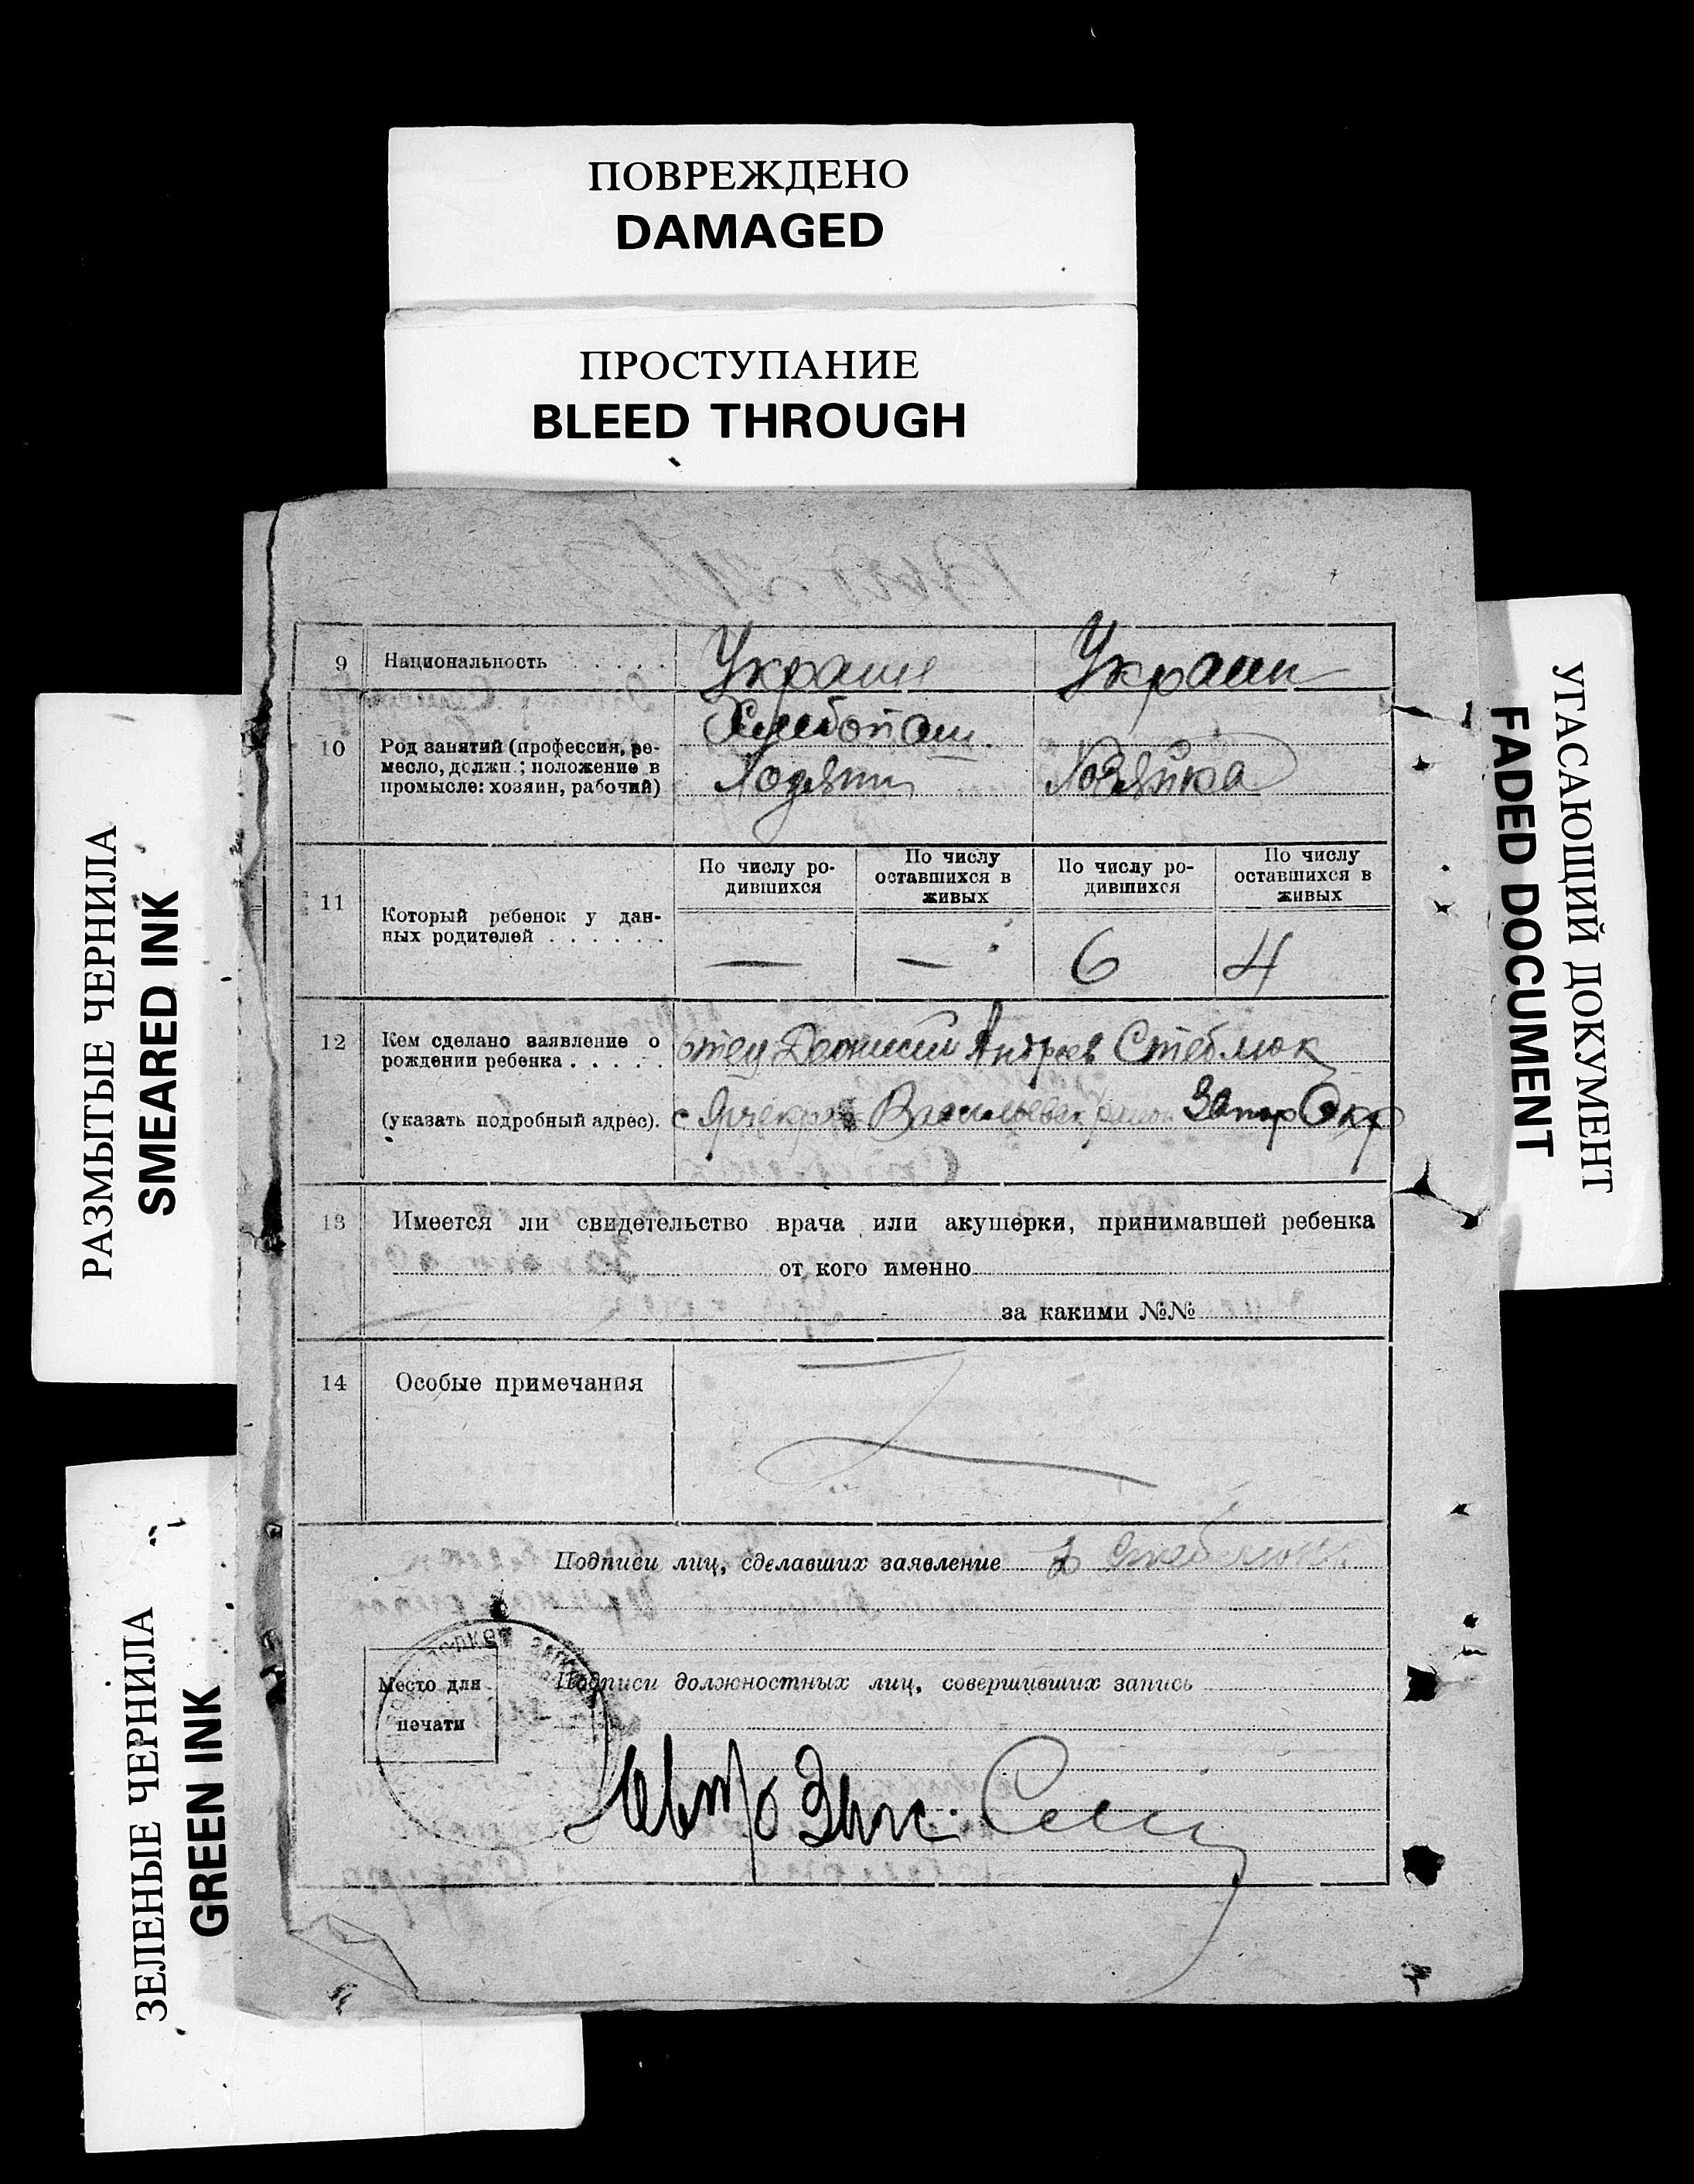 ПОВРЕЖДЕНО
DAMAGED
ПРОСТУПАНИЕ
BLEED THROUGH
РАЗМЫТЫЕ ЧЕРНИЛА
SMEARED INK
ЗЕЛЕНЫЕ ЧЕРНИЛА
GREEN INK
УГАСАЮЩИЙ ДОКУМЕНТ
FADED DOCUMENT
9 Национальность . . . . . Украине Украин
10 Род занятий (профессия, ре-
месло, должн.; положение в
промысле: хозяин, рабочий)
Хлебопаш.
Хозяйка
11 Который ребенок у дан-
ных родителей . . . . . .
По числу ро-
дившихся
По числу
оставшихся в
живых
По числу ро-
дившихся
По числу
оставшихся в
живых
— — 6 4
12 Кем сделано заявление о
рождении ребенка . . . . .
отец Андреев Стеблюк
(указать подробный адрес).
с Запор Окр
13 Имеется ли свидетельство врача или акушерки, принимавшей ребенка
от кого именно
за какими №№
14 Особые примечания
Подписи лиц, сделавших заявление
Место для
печати
Подписи должностных лиц, совершивших запись